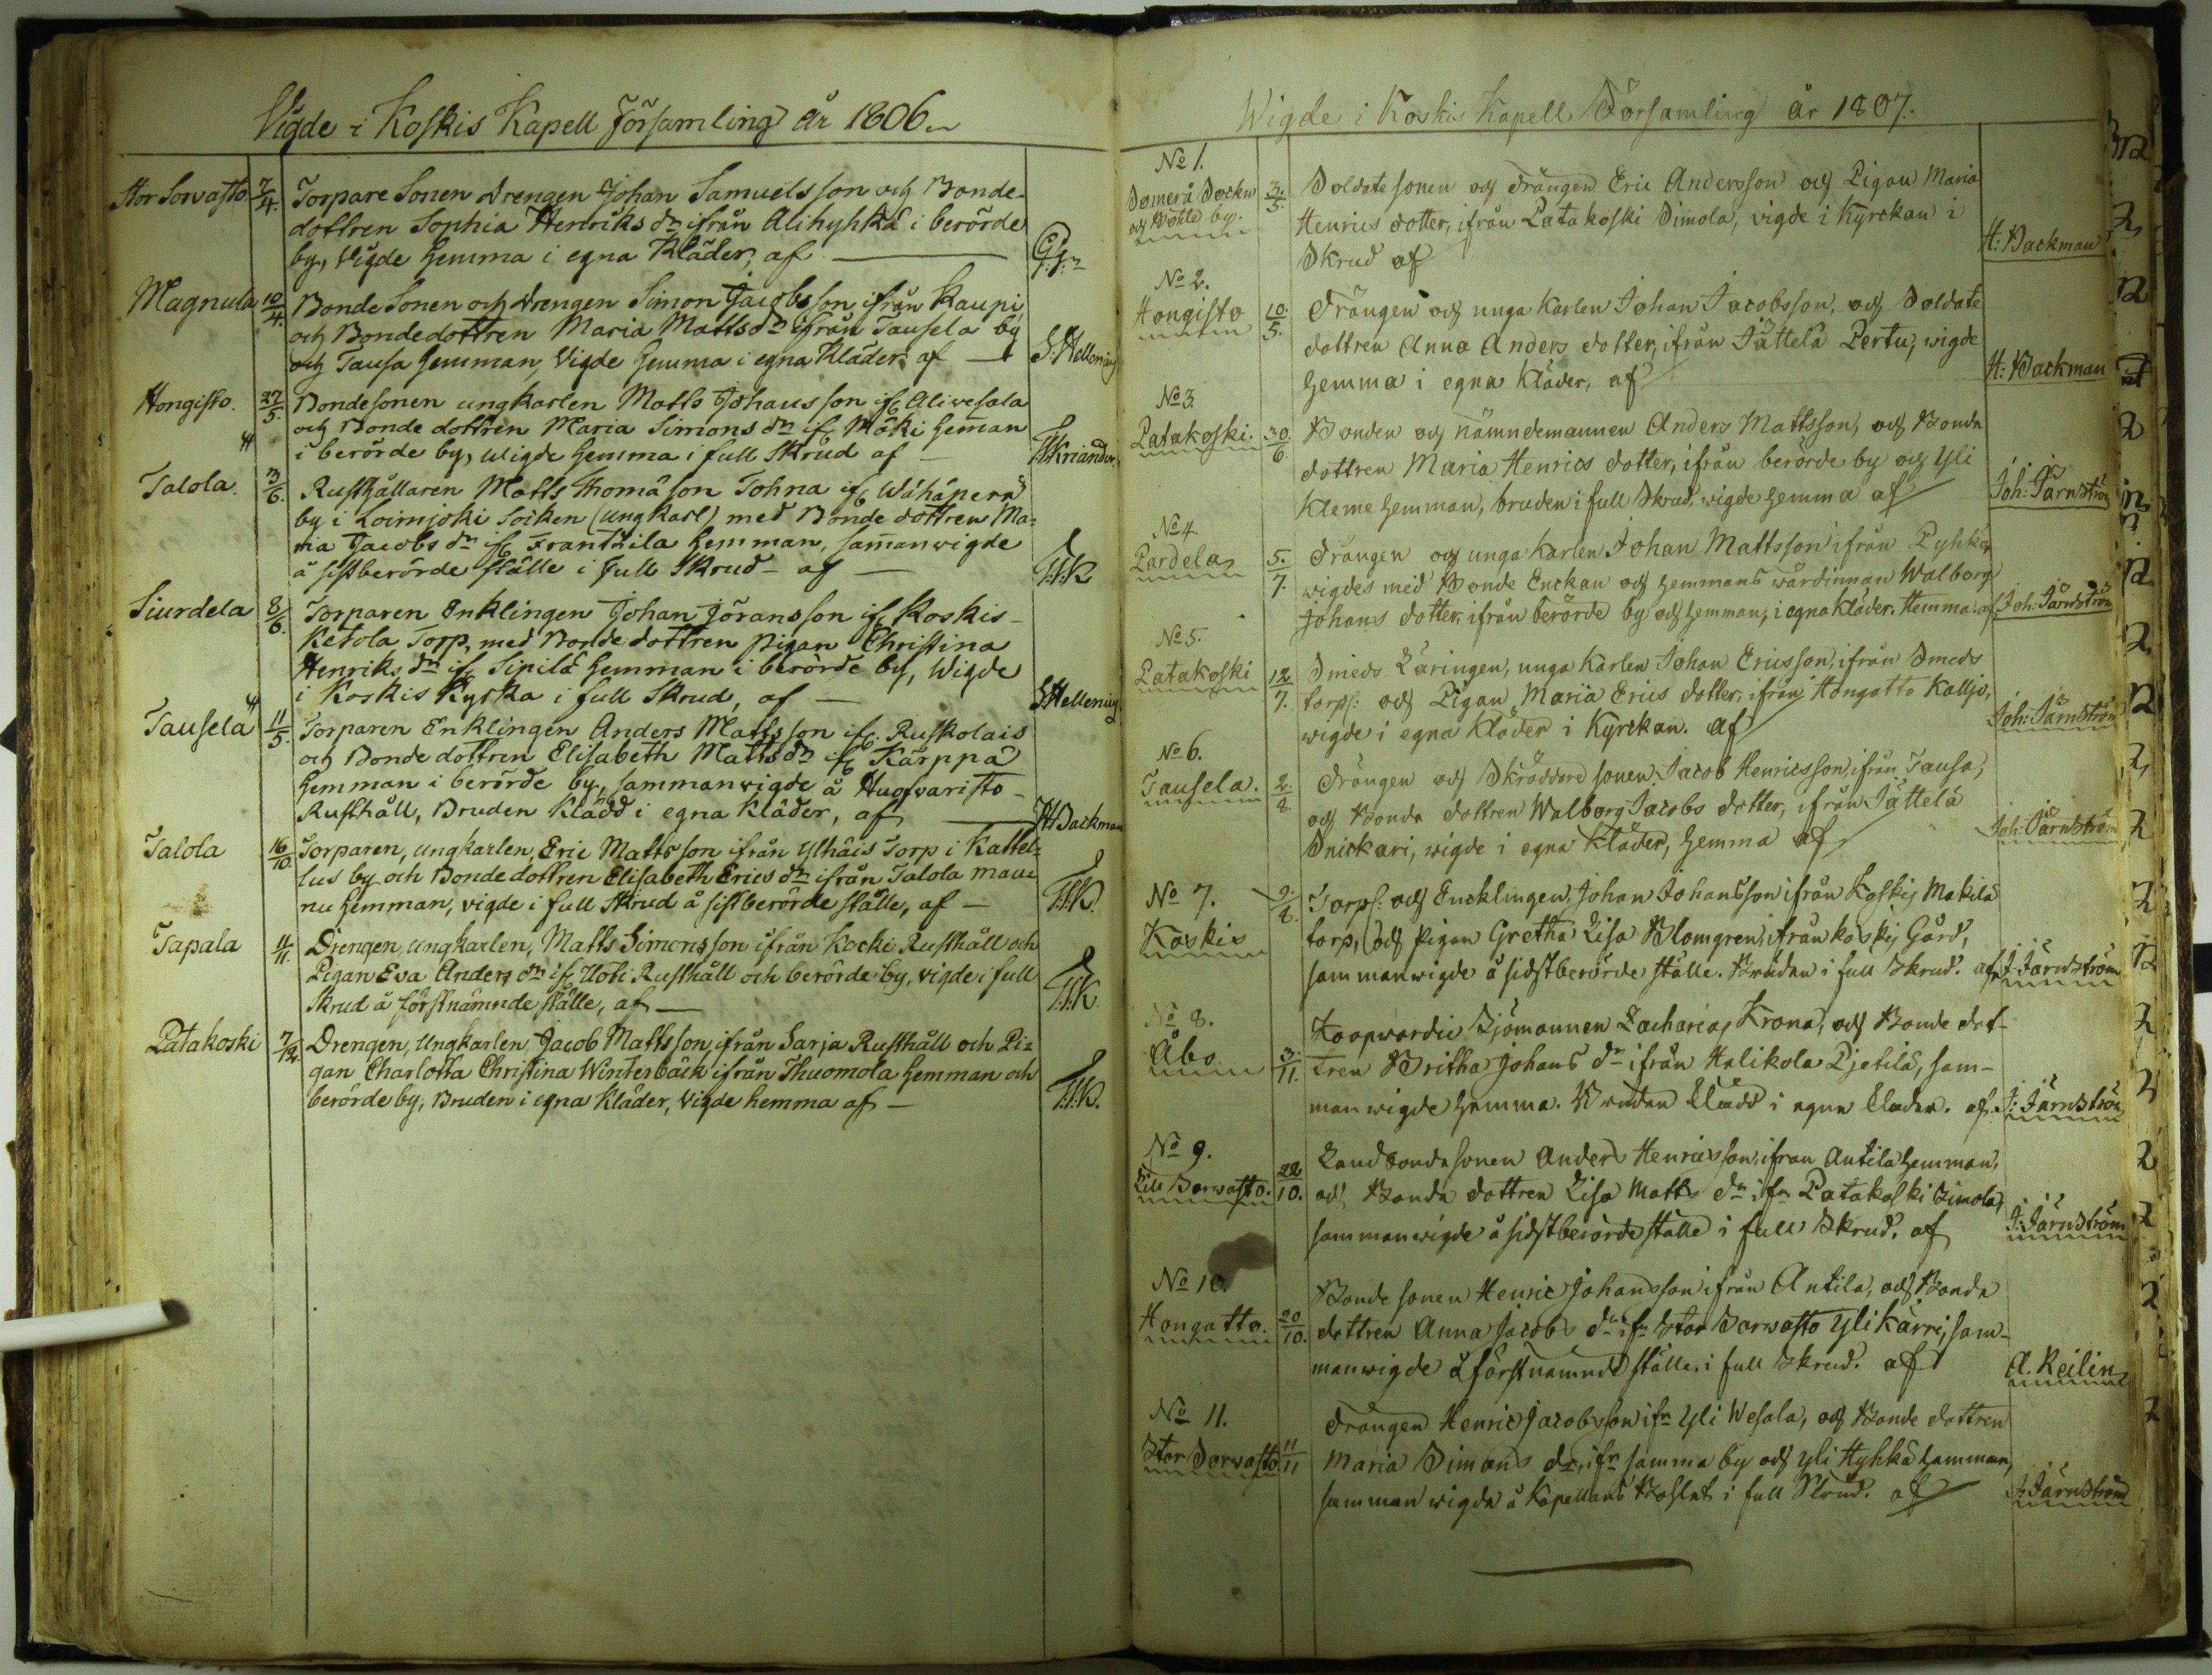 Vigde i Koskis Kapell Församling år 1806
Stor Sorvasto 7/4. Torpare Sonen Drengen Johan Samuelsson och Bonde-
dottren Sophia Henriks dr ifrån Alihyhkä i berörde
by, Vigde hemma i egna Kläder, af
Magnula 10/4. Bonde Sonen och Drengen Simon Jacobsson ifrån Kaupi
och Bondedottren Maria Matts dr ifrån Tausela by
och Tausa hemman, Vigde hemma i egna Kläder af — S. Hellenius
Hongisto. 27/5. Bondesonen ungkarlen Matts Johansson ifr Alivesala
och Bonde dottren Maria Simons dr ifr Mäki heman
i berörde by, wigde hemma i full Skrud af — T.T.Kriander
Talola. 3/6. Rusthållaren Matts Thomäson Tohna ifr Wähäperä
by i Loimjoki Socken (ungkarl) med Bonde dottren Ma-
ria Jacobs dr ifr Frantzila hemman, samanwigde
å sistberörde ställe i full Skrud - af — T.T.K
Siurdela 8/6. Torparen Enklingen Johan Jöransson ifr Koskis-
Ketola Torp, med Bonde dottren pigan Christina
Henriks dr ifr Sipilä hemman i berörde by, Wigde
i Koskis Kyrka i full Skrud, af — S Hellenius
Tausela 11/5. Torparen Enklingen Anders Mattsson ifr Ruskolais
och Bonde dottren Elisabeth Matts dr ifr Kärppä
hemman i berörde by, sammanvigde å Huovaristo-
Rusthåll, Bruden klädd i egna Kläder, af — H Backman
Talola 16/10. Torparen, ungkarlen, Eric Mattsson ifrån Ylhäis Torp i Kattel-
lus by och Bonde dottren Elisabeth Erics dr ifrån Talola mau
nu hemman, vigde i full Skrud å sistberörde ställe, af — T.T.K.
Tapala 11/11. Drengen, ungkarlen, Matts Simonsson ifrån Kocki Rusthåll och
Pigan Eva Anders dr ifr Uoti Rusthåll och berörde by, vigde i full
Skrud å förstnämnde ställe, af — T.T.K.
Patakoski 7/12. Drengen, Ungkarlen, Jacob Mattsson, ifrån Sarja Rusthåll och Pi-
gan Charlotta Christina Winterbäck ifrån Thuomola hemman och
berörde by, Bruden i egna kläder, Vigde hemma af — T.T.K.
Wigde i Koskis Kapell Församling år 1807.
No 1.
Somerå Sockn 3./5. Soldate sonen och drängen Eric Andersson och Pigan Maria
Henrics dotter, ifrån Patakoski Simola, vigde i Kyrckan i
Skrud af H: Backman
No 2.
Hongisto 10./5. Drängen och unga karlen Johan Jacobsson, och Soldate
dottren Anna Anders dotter, ifrån Jättelä Pertu, wigde
hemma i egna Kläder, af H: Backman
No 3.
Patakoski. 30./6. Bonden och nämndemannen Anders Mattsson, och Bonde
dottren Maria Henrics dotter, ifrån berörde by och Yli
Kleme hemman, bruden i full Skrud, wigde hemma af Joh: Järnström
No 4.
Pardela 5./7. Drängen och unga karlen Johan Mattsson ifrån Pyhkä
wigdes med Bonde Enckan och hemmans wärdinnan Walborg
Johans dotter, ifrån berörde by och hemman, i egna kläder. Hemma. af Joh: Järnström
No 5.
Patakoski 12/7. Smeds Läringen, unga karlen Johan Ericsson, ifrån Smeds
torp: och Pigan Maria Erics dotter, ifrån Hongatto Kalljo,
wigde i egna Kläder i Kyrckan. af Joh: Järnström
No 6.
Tausela. 2./8 Drängen och Skräddare sonen Jacob Henricsson, ifrån Tausa,
och Bonde dottren Walborg Jacobs dotter, ifrån Jättelä
Snickari, wigde i egna Kläder, hemma af Joh: Järnström
No 7. 9./8. Torp: och Encklingen, Johan Johansson ifrån Koskis Makilä
Koskis torp, och pigan Gretha Lisa Blomgren, ifrån koskis Gård,
sammanwigde å sidstberörde ställe. Bruden i full Skrud. af J: Järnström
No 8. Koopwardie Sjömannen Zacharias Krona, och Bonde dot-
Åbo 3./11. tren Britha Johans dr ifrån Halikola Pjetilä, sam-
man wigde hemma. Bruden klädd i egna kläder. af J: Järnström
No 9. Landbonde sonen Anders Henricsson, ifrån Antila hemman,
Lill Sorvasto. 22/10. och Bonde dottren Lisa Matts dr ifr Patakoski Simola,
sammanwigde å sidstberörde ställe i full Skrud. af J: Järnström
No 10. Bonde sonen Henric Johansson ifrån Antila, och Bonde
Hongatto. 20/10. dottren Anna Jacobs dr ifr Stor Sorvasto Ylikärri, sam-
manwigde å förstnämnde ställe i full Skrud. af A. Reilin
No 11. Drängen Henric Jacobsson ifr Yli Wesala, och Bonde dottren
Stor Sorvasto 11/11 Maria Simons dr, ifr samma by och Yli Hyhkä hemman,
samman wigde å Kapellans Bohlet i full Skrud. af J: Järnström